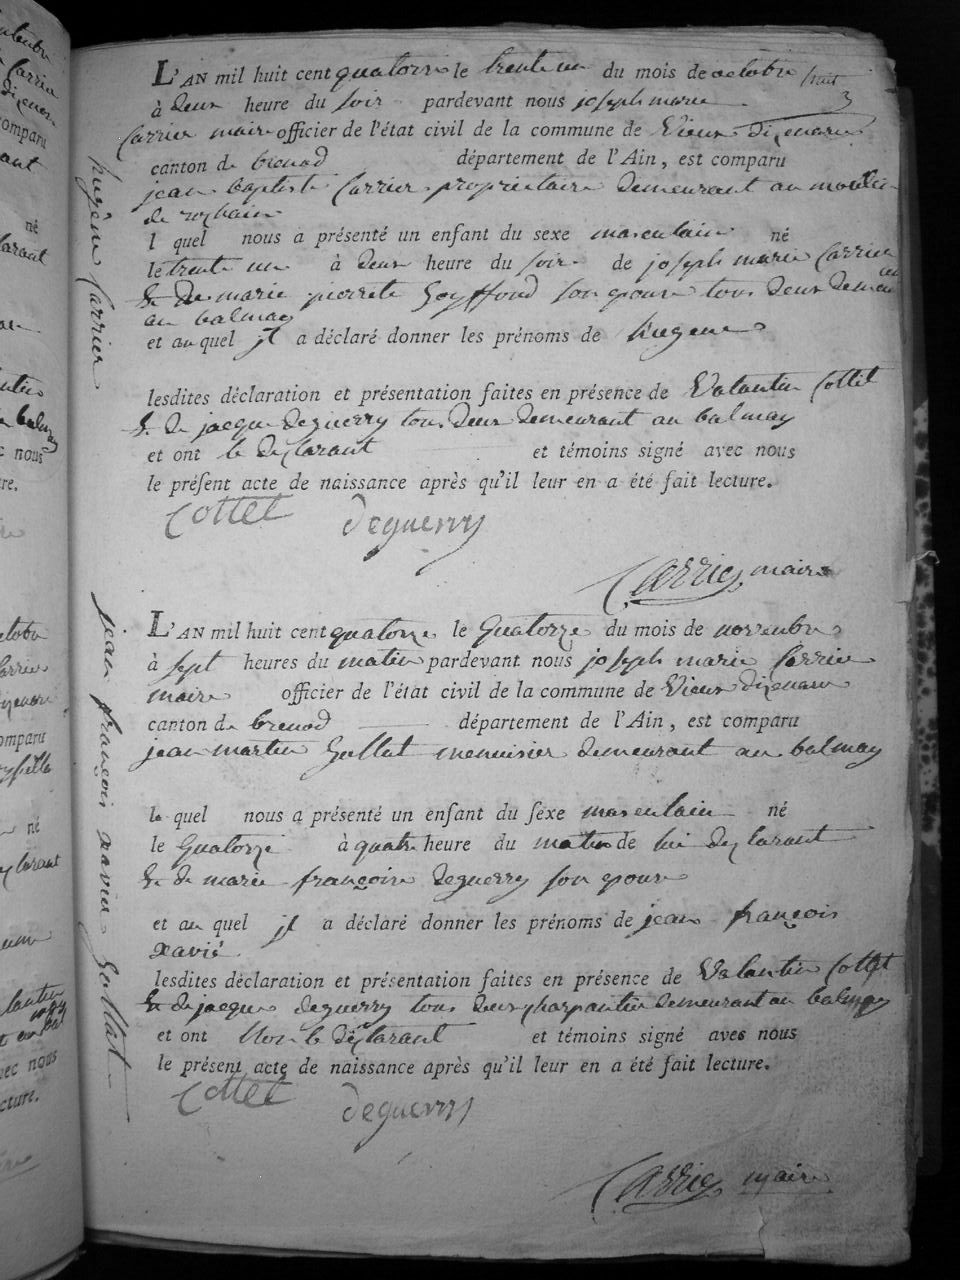 L'AN mil huit cent quatorze le trente un du mois de octobre huit
3
à deux heure du soir pardevant nous joseph marie
Carrier maire officier de l'état civil de la commune de Vieux dizenave
canton de brenod département de l'Ain, est comparu
jean baptiste Carrier proprietaire demeurant au moulin
de
l quel nous a présenté un enfant du sexe masculain né
le trente un à deux heure du soir de joseph marie Carrier
& de marie pierrete Goyffond son epouse tous deux demeu
au balmay
et au quel jl a déclaré donner les prénoms de hugene
lesdites déclaration et présentation faites en présence de Valantin Cottet
& de jacque deguerry tous deux demeurant au balmay
et ont le declarant et témoins signé avec nous
le présent acte de naissance après qu'il leur en a été fait lecture.
Cottet deguerry
Carrier maire
hugène Carrier
L'AN mil huit cent quatorze le Quatorze du mois de novembre
à sept heures du matin pardevant nous joseph marie Carrier
maire officier de l'état civil de la commune de Vieux dizenave
canton de brenod département de l'Ain, est comparu
jean martin Gallat menuisier demeurant au balmay
le quel nous a présenté un enfant du sexe masculain né
le Quatorze à quatre heure du matin de lui declarant
& de marie françoise deguerry son epouse
et au quel jl a déclaré donner les prénoms de jean françois
xavié
lesdites déclaration et présentation faites en présence de Valantin Cottet
& de jacque deguerry tous deux charpantier demeurant au balmay
et ont Non le declarant et témoins signé avec nous
le présent acte de naissance après qu'il leur en a été fait lecture.
Cottet deguerry
Carrier maire
jean françois xavier Gallat